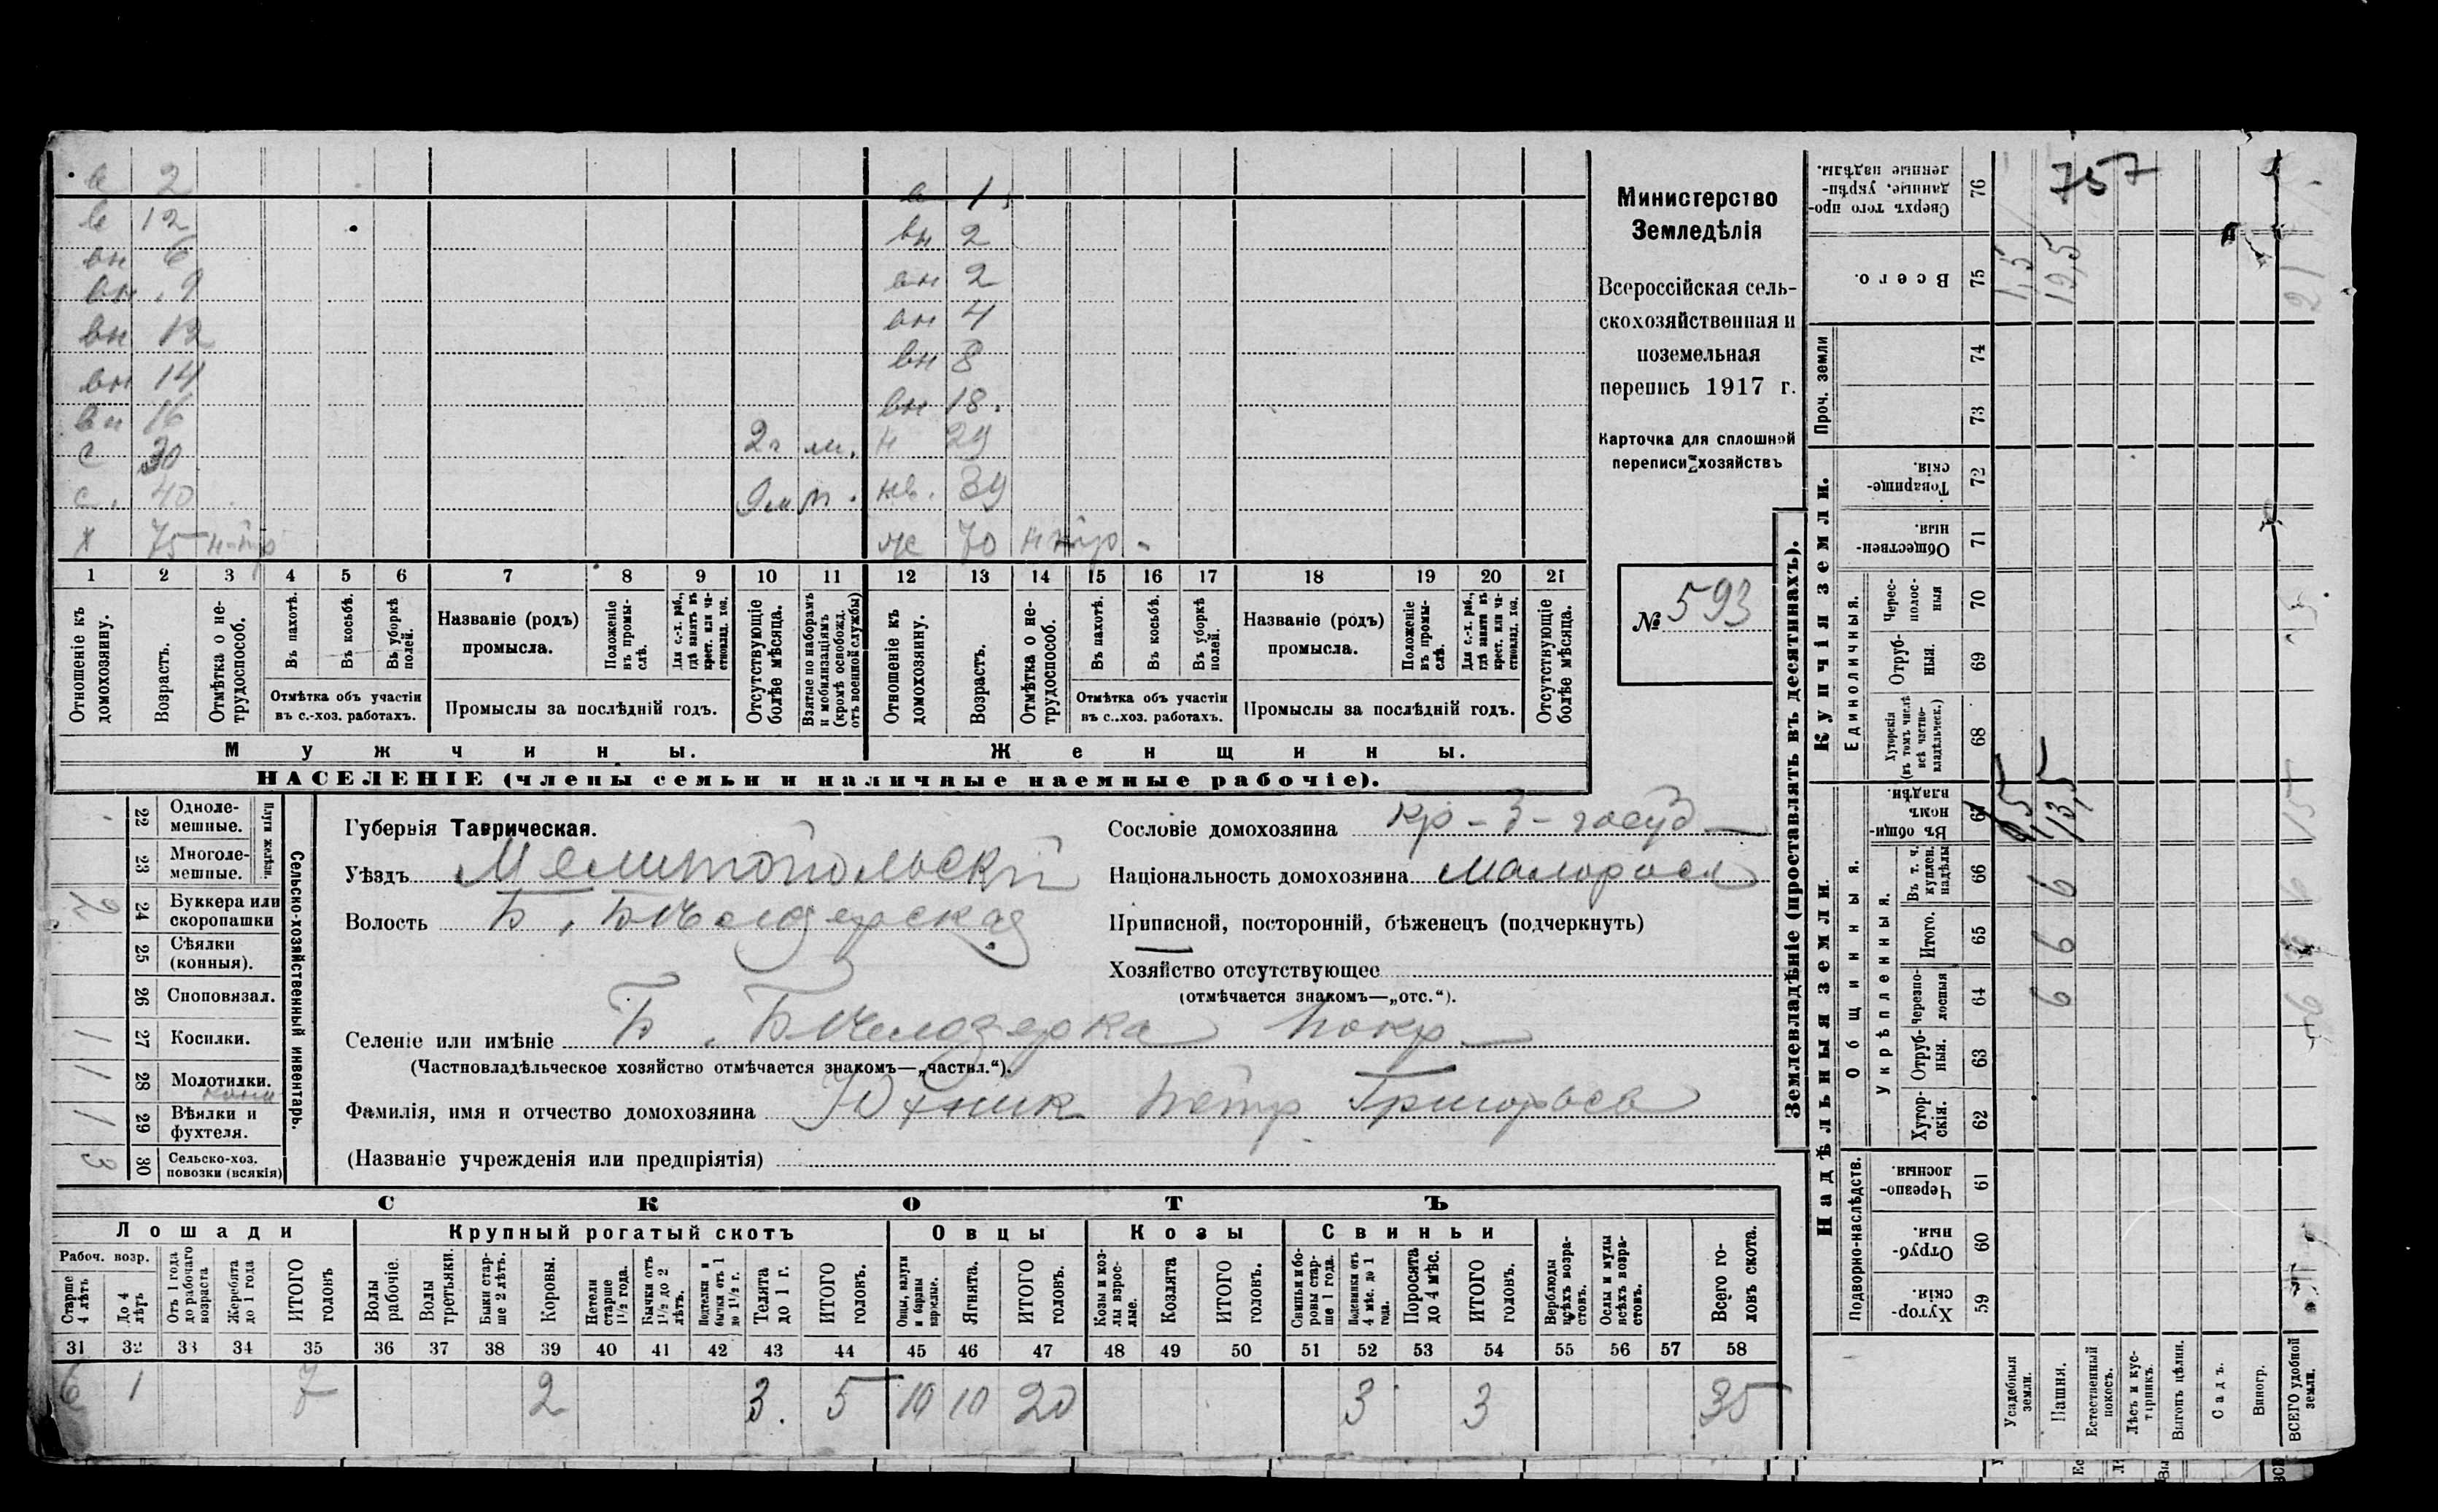 в 2
в 12
вн 6
вн 9
вн 12
вн 14
вн 16
с 30 2 г м.
с. 40 9 м м.
х 75 н-тр
в 1
вн 2
вн 2
вн 4
вн 8
вн 18.
н 29
нв. 39
ж 70 н тр -
1 2 3 4 5 6 7 8 9 10 11 12 13 14 15 16 17 18 19 20 21
Отношеніе къ домохозяину.
Возрастъ.
Отмѣтка о не-трудоспособ.
Въ пахотѣ.
Въ косьбѣ.
Въ уборкѣ полей.
Отмѣтка объ участіи
въ с.-хоз. работахъ.
Названіе (родъ)
промысла.
Положеніе въ промы-слѣ.
Для с.-х. раб., гдѣ занятъ въ крест. или ча-стновлад. хоз.
Промыслы за послѣдній годъ.
Отсутствующіе болѣе мѣсяца.
Взятые по наборамъ и мобилизаціямъ (кромѣ освобожд. отъ военной службы)
Отношеніе къ домохозяину.
Возрастъ.
Отмѣтка о не-трудоспособ.
Въ пахотѣ.
Въ косьбѣ.
Въ уборкѣ полей.
Отмѣтка объ участіи
въ с..хоз. работахъ.
Названіе (родъ)
промысла.
Положеніе въ промы-слѣ.
Для с.-х. раб., гдѣ занята въ крест. или ча-стновлад. хоз.
Промыслы за послѣдній годъ.
Отсутствующіе болѣе мѣсяца.
Мужчины.
Женщины.
НАСЕЛЕНІЕ (члены семьи и наличные наемные рабочіе).
Министерство
Земледѣлія
Всероссійская сель-
скохозяйственная и
поземельная
перепись 1917 г.
Карточка для сплошной
переписи хозяйствъ
№ 593
22 Одноле-мешные.
23 Многоле-мешные.
Плуги желѣзн.
24 Буккера или скоропашки 2
25 Сѣялки (конныя).
26 Сноповязал.
27 Косилки. 1
28 Молотилки. 1
29 Вѣялки и фухтеля. 1
30 Сельско-хоз. повозки (всякія) 3
Сельско-хозяйственный инвентарь.
Губернія Таврическая.
Уѣздъ Мелитопольскій
Волость Б. Бѣлозерская
Сословіе домохозяина кр-з-госуд
Національность домохозяина малоросс
Приписной, посторонній, бѣженецъ (подчеркнуть)
Хозяйство отсутствующее
(отмѣчается знакомъ—„отс.“).
Селеніе или имѣніе Б. Бѣлозерка Покр
(Частновладѣльческое хозяйство отмѣчается знакомъ—„частвл.“).
Фамилія, имя и отчество домохозяина Юхник Петр Григорьев
(Названіе учрежденія или предпріятія)
СКОТЪ
Лошади
Крупный рогатый скотъ
Овцы
Козы
Свиньи
Рабоч. возр.
Старше 4 лѣтъ
До 4 лѣтъ
Отъ 1 года до рабочаго возраста
Жеребята до 1 года
ИТОГО головъ
Волы рабочіе.
Волы третьяки.
Быки стар-ше 2 лѣтъ.
Коровы.
Нетели старше 1½ года.
Бычки отъ 1½ до 2 лѣтъ.
Подтелки и бычки отъ 1 до 1½ г.
Телята до 1 г.
ИТОГО головъ.
Овцы, валухи и бараны взрослые.
Ягнята.
ИТОГО головъ.
Козы и коз-лы взрос-лые.
Козлята
ИТОГО головъ.
Свиньи и бо-ровы стар-ше 1 года.
Подсвинки отъ 4 мѣс. до 1 года.
Поросята до 4 мѣс.
ИТОГО головъ.
Верблюды всѣхъ возра-стовъ.
Ослы и мулы всѣхъ возра-стовъ.
Всего го-ловъ скота.
31 32 33 34 35 36 37 38 39 40 41 42 43 44 45 46 47 48 49 50 51 52 53 54 55 56 57 58
6 1 7 2 3. 5 10 10 20 3 3 35
Землевладѣніе (проставлять въ десятинахъ).
Надѣльныя земли.
Купчія земли.
Проч. земли
Подворно-наслѣдств.
Общинныя.
Укрѣпленныя.
Единоличныя.
Хутор-скія. 59
Отруб-ныя. 60
Черезпо-лосныя. 61
Хутор-скія. 62
Отруб-ныя. 63
Черезпо-лосныя 64
Итого. 65
Въ т. ч. куплен. надѣлы 66
Въ общи-номъ владѣн. 67
Хуторскія (въ томъ числѣ всѣ частно-владѣльческ.) 68
Отруб-ныя. 69
Черес-полос-ныя 70
Обществен-ныя. 71
Товарище-скія. 72
73
74
Всего. 75
Сверхъ того про-данные, укрѣп-ленные надѣлы. 76
Усадебныя земли.
Пашня.
Естественный покосъ.
Лѣсъ и кус-тарникъ.
Выгонъ цѣлин.
Садъ.
Виногр.
ВСЕГО удобной земли.
6 6 6
1,5 13,5
1,5 19,5
757
21